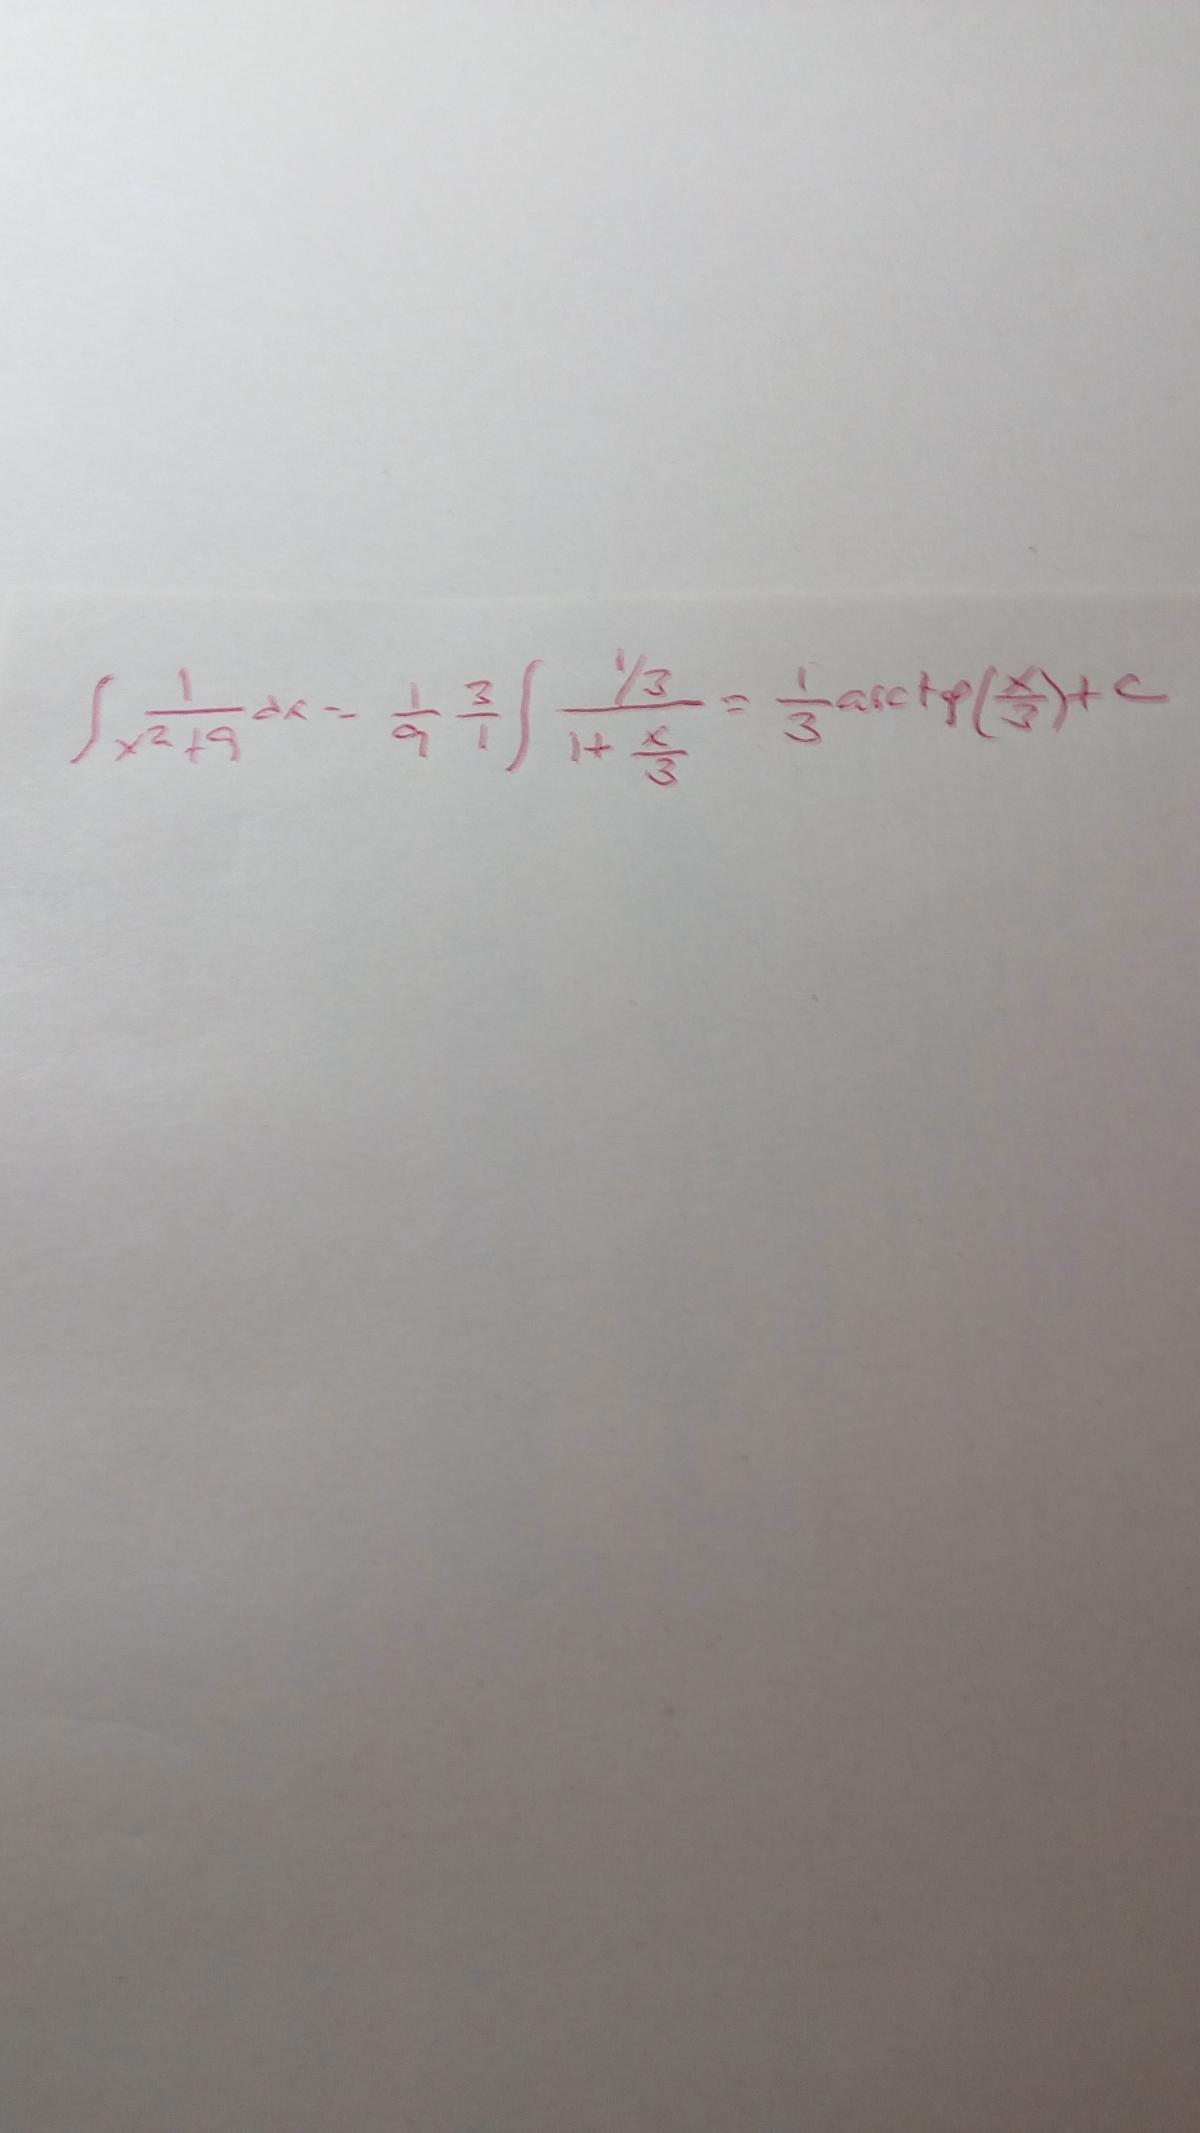 ∫ 1/(x²+9) dx = 1/9 3/1 ∫ (1/3)/(1+ x/3) = 1/3 arctg(x/3)+c